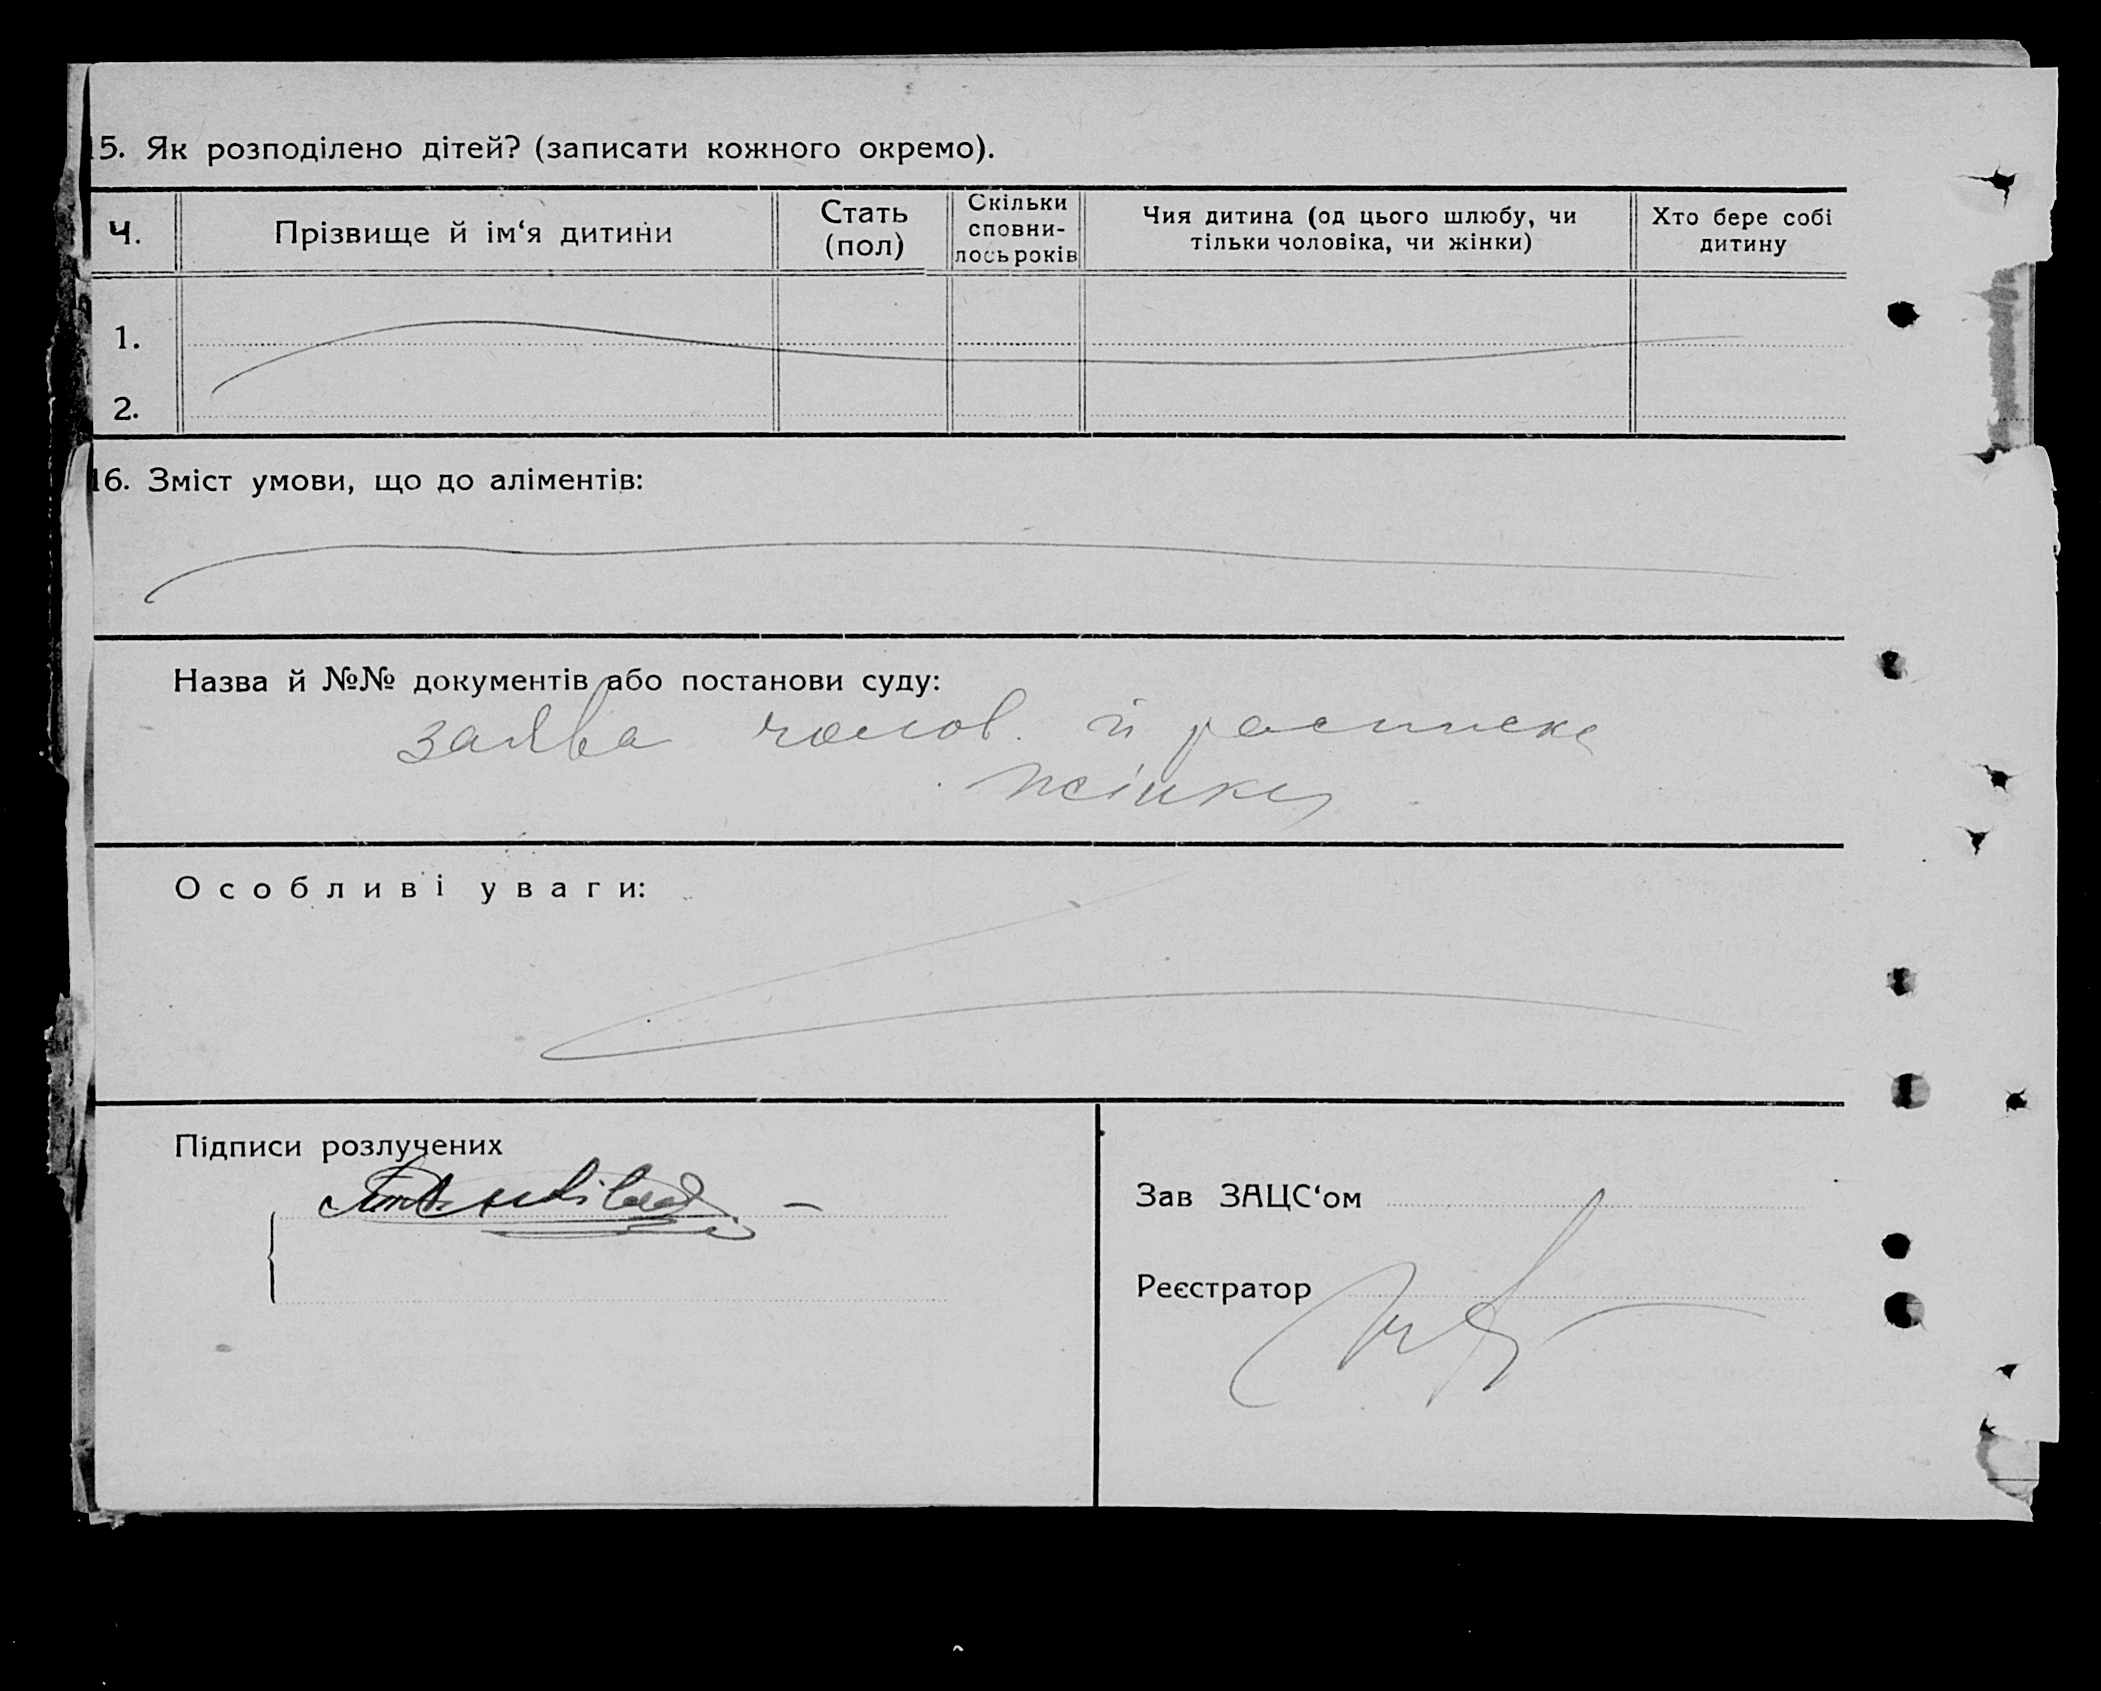 15. Як розподілено дітей? (записати кожного окремо).
Ч. Прізвище й ім‘я дитини Стать (пол) Скільки сповни-лось років Чия дитина (од цього шлюбу, чи тільки чоловіка, чи жінки) Хто бере собі дитину
1.
2.
16. Зміст умови, що до аліментів:
Назва й №№ документів або постанови суду:
заява чолов. й росписка
жінки
Особливі уваги:
Підписи розлучених
Зав ЗАЦС‘ом
Реєстратор